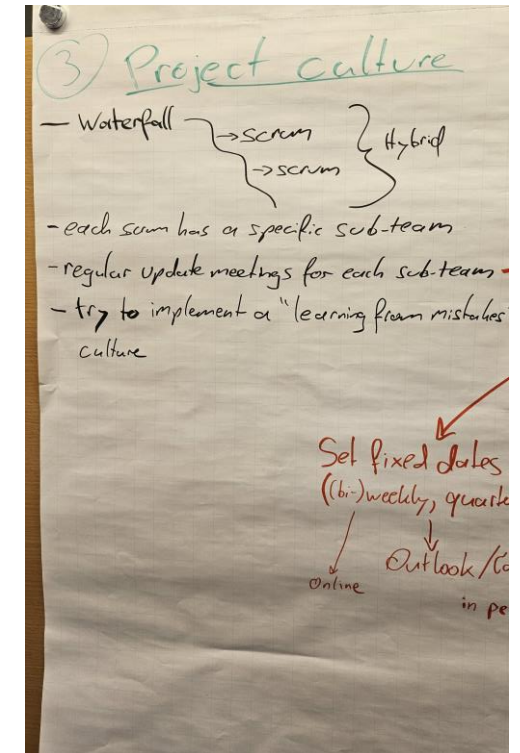 ③ Project culture
- Waterfall →scrum } Hybrid
→scrum
- each scrum has a specific sub-team
- regular update meetings for each sub-team
- try to implement a "learning from mistakes"
culture
Set fixed dates
((bi-)weekly, quarte
Outlook/Ca
Online
in pe